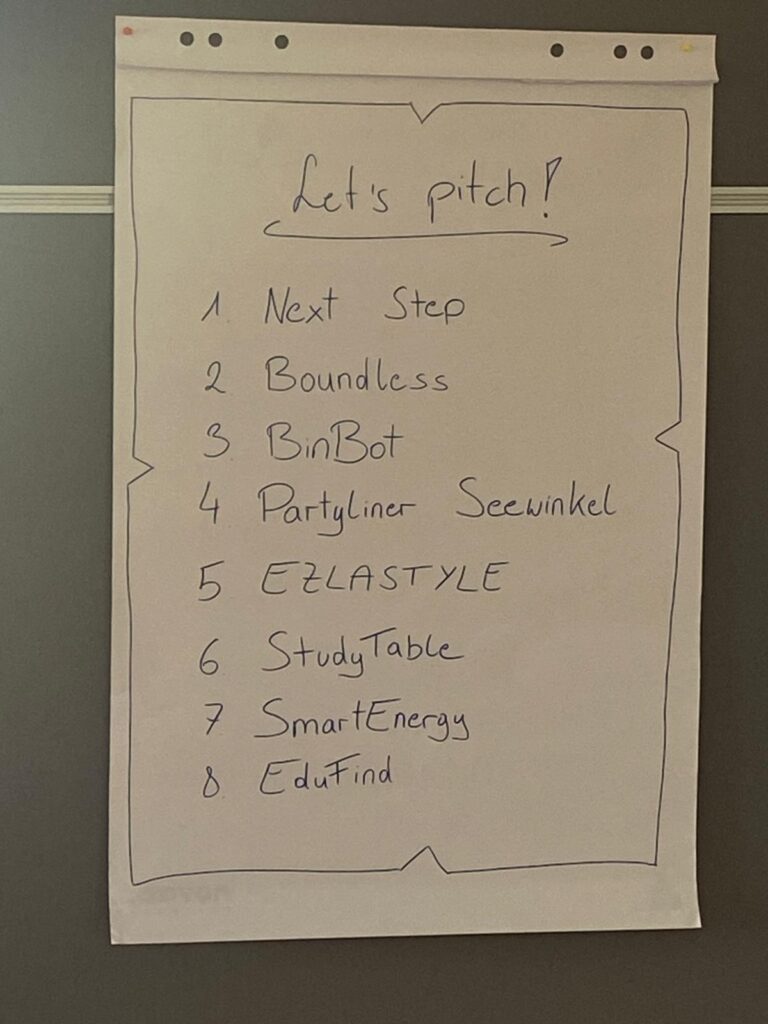 Let's pitch!
1. Next Step
2 Boundless
3. BinBot
4 Partyliner Seewinkel
5 EZLASTYLE
6 StudyTable
7 SmartEnergy
8. EduFind